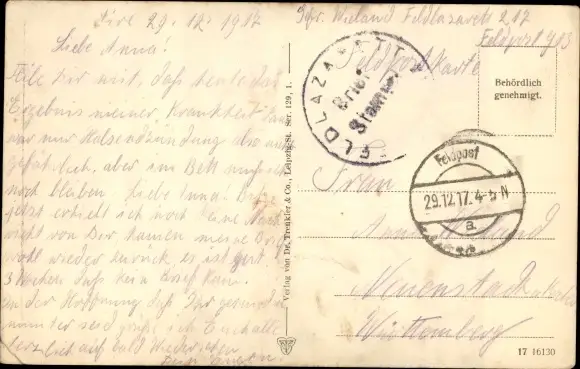 Sire 29. 12. 1917
Liebe Anna!
Teile Dir mit, daß heute das
Ergebnis meiner Krankheit
war nur Halsendzündung also nicht
gefährlich, aber im Bett muß ich
noch bleiben. Liebe Anna!
jetzt erhielt ich noch eine
nicht von Dir kamen meine Briefe
wohl wieder zurück, es ist jetzt
3 Wochen daß kein Brief kam.
In der Hoffnung daß Ihr gesund u.
munter seid grüße ich Euch alle
herzlich auf bald Wiedersehen
Verlag von Dr. Trenkler & Co., Leipzig-St. Ser. 129, 1.
Wieland Feldlazarett 217
Feldpost 903
Feldpostkarte
FELDLAZARETT
Brief
Stempel
Behördlich
genehmigt.
Feldpost
29.12.17. 4-5 N
a.
Frau
Anna Wieland
Neuenstadt a. Kocher
Württemberg
17 16130